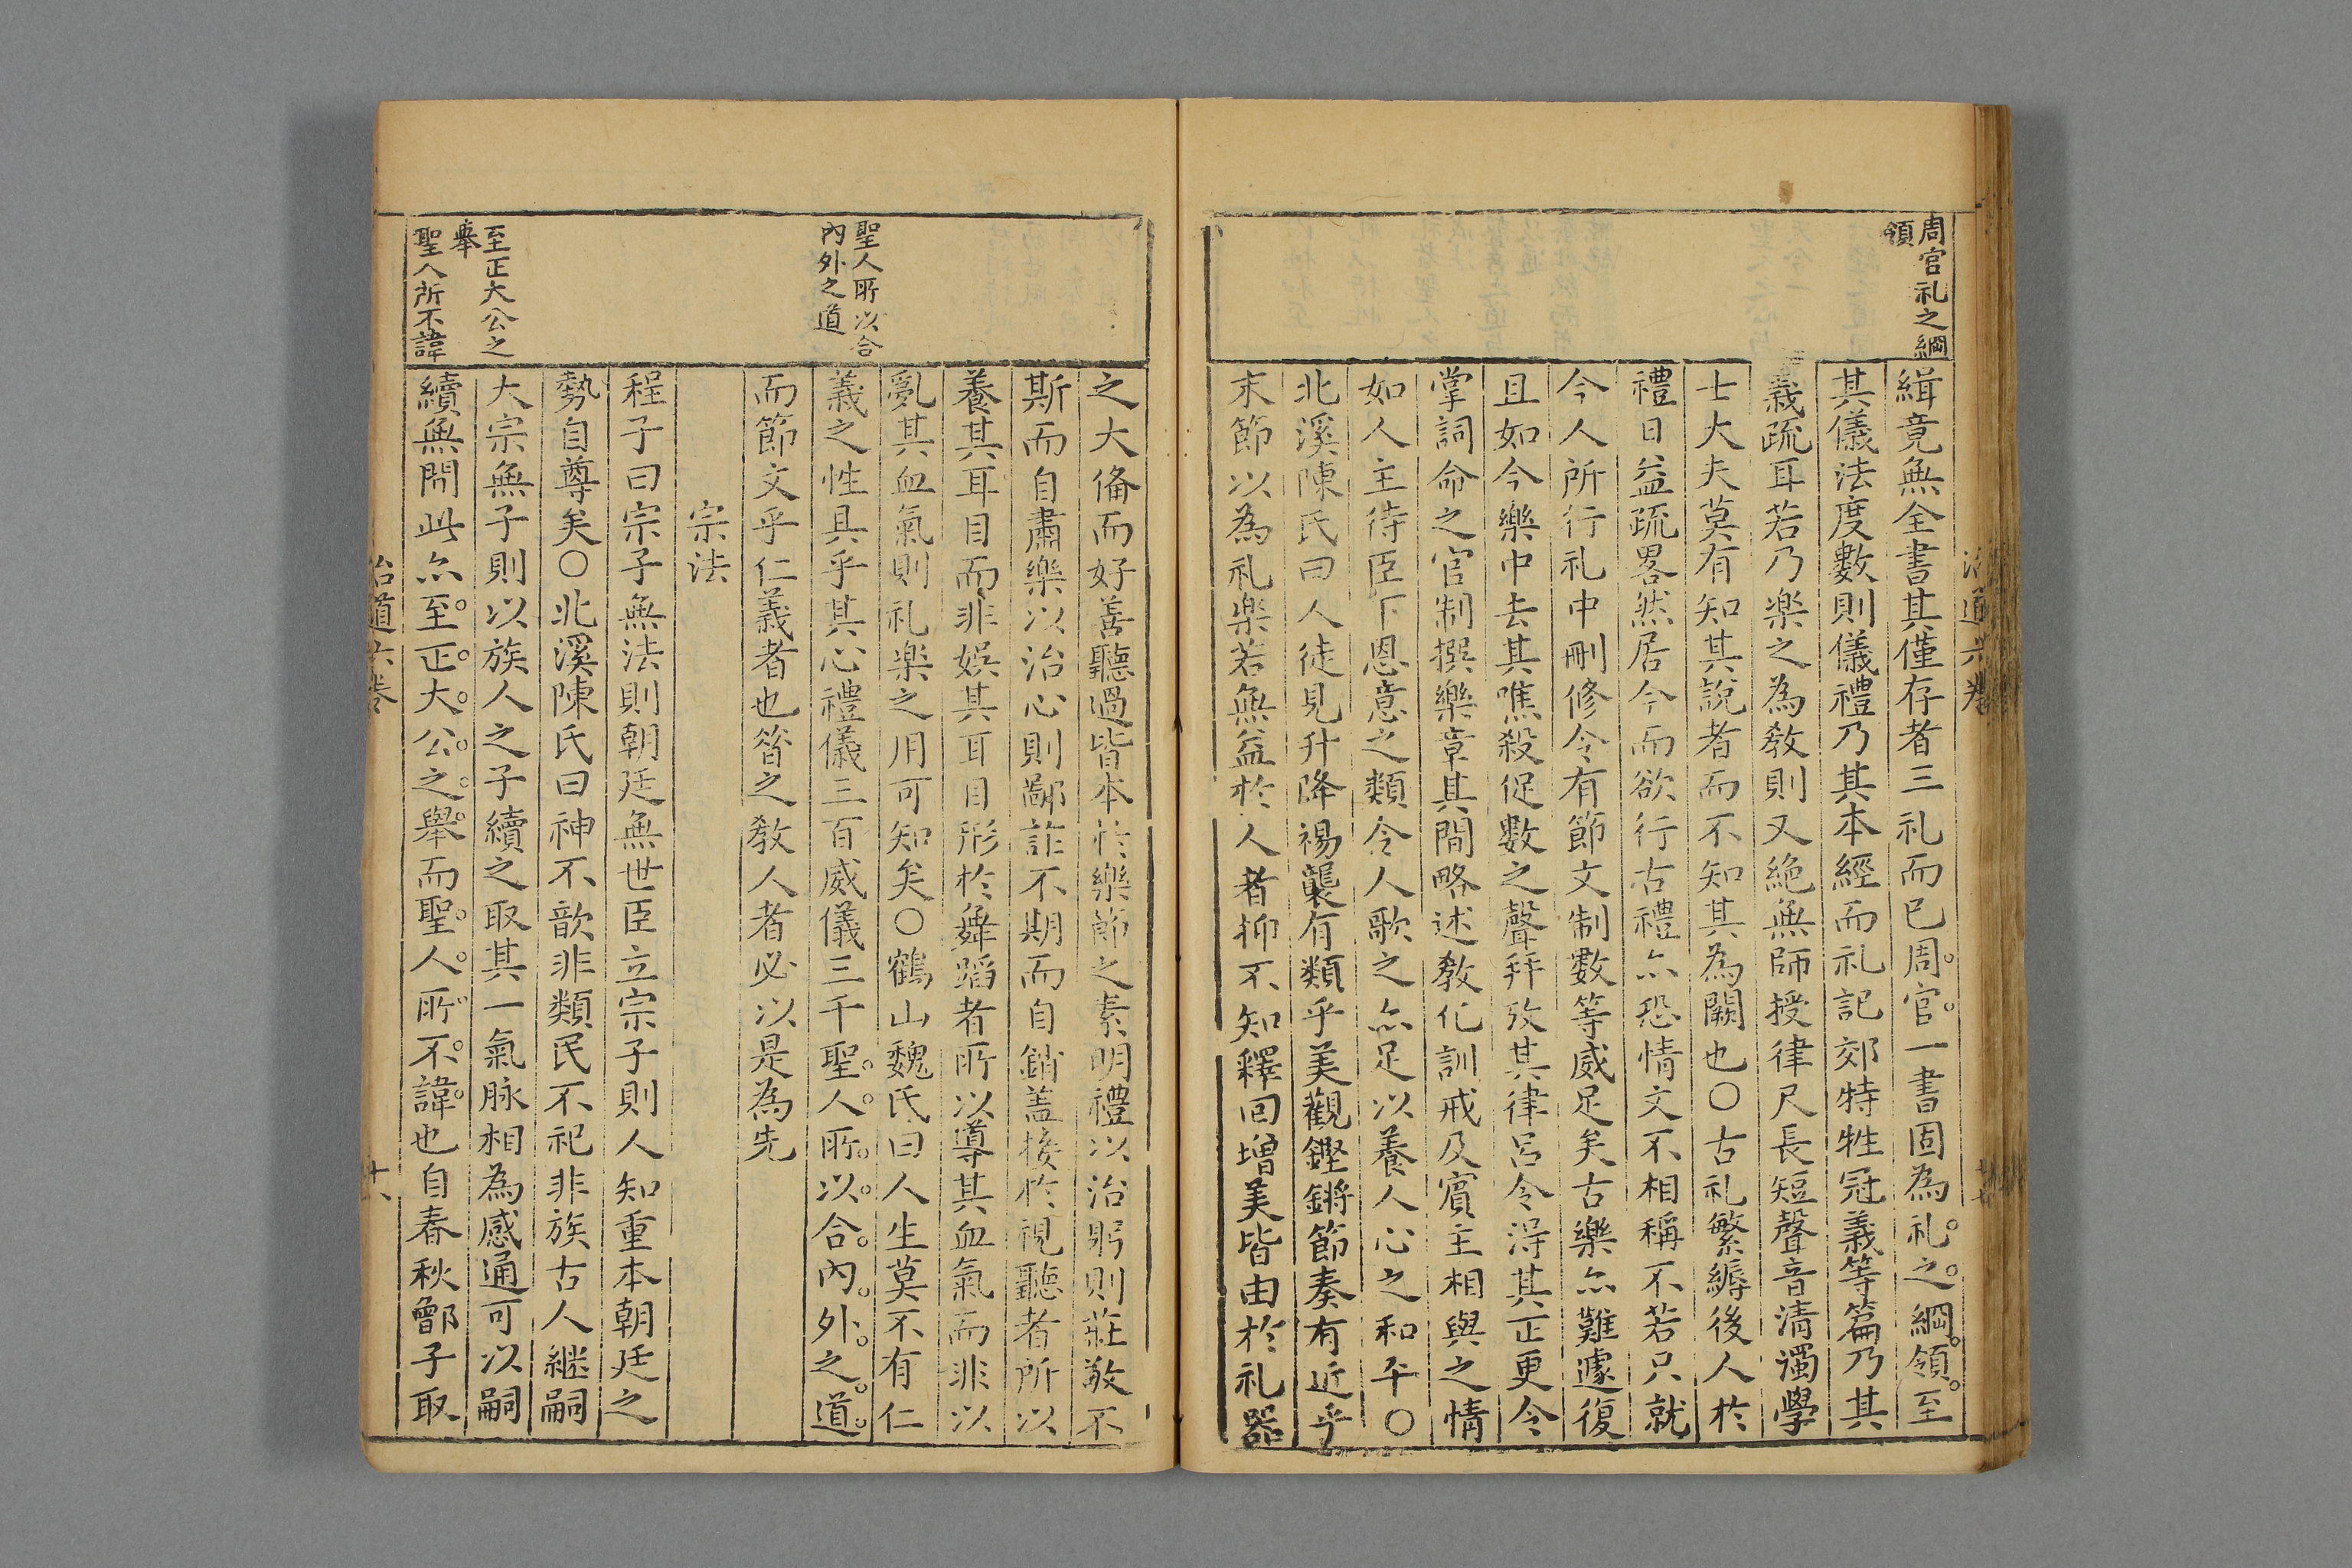 周官礼之綱
領
緝竟無全書其僅存者三礼而已周官一書固為礼之綱領至
其儀法度數則儀禮乃其本經而礼記郊特牲冠義等篇乃其
義疏耳若乃楽之為教則又絶無師授律尺長短聲音清濁學
士大夫莫有知其說者而不知其為闕也〇古礼繁縟後人於
禮日益疏畧然居今而欲行古禮亦恐情文不相稱不若只就
今人所行礼中刪修令有節文制數等威足矣古樂亦難遽復
且如今樂中去其噍殺促數之聲并攷其律呂令得其正更令
掌詞命之官制撰樂章其間略述教化訓戒及賓主相與之情
如人主待臣下恩意之類令人歌之亦足以養人心之和平〇
北溪陳氏曰人徒見升降裼襲有類乎美觀鏗鏘節奏有近乎
末節以為礼楽若無益於人者抑不知釋回增美皆由於礼器
聖人所以合
內外之道
至正大公之
舉
聖人所不諱
之大俻而好善聽過皆本於樂節之素明禮以治躬則莊敬不
斯而自肅樂以治心則鄙詐不期而自銷盖接於視聽者所以
養其耳目而非娛其耳目形於舞蹈者所以導其血氣而非以
亂其血氣則礼楽之用可知矣〇鶴山魏氏曰人生莫不有仁
義之性具乎其心禮儀三百威儀三千聖人所以合內外之道
而節文乎仁義者也昝之教人者必以是為先
宗法
程子曰宗子無法則朝廷無世臣立宗子則人知重本朝廷之
勢自尊矣〇北溪陳氏曰神不歆非類民不祀非族古人継嗣
大宗無子則以族人之子續之取其一氣脉相為感通可以嗣
續無間此亦至正大公之舉而聖人所不諱也自春秋鄫子取
治道六卷
十八